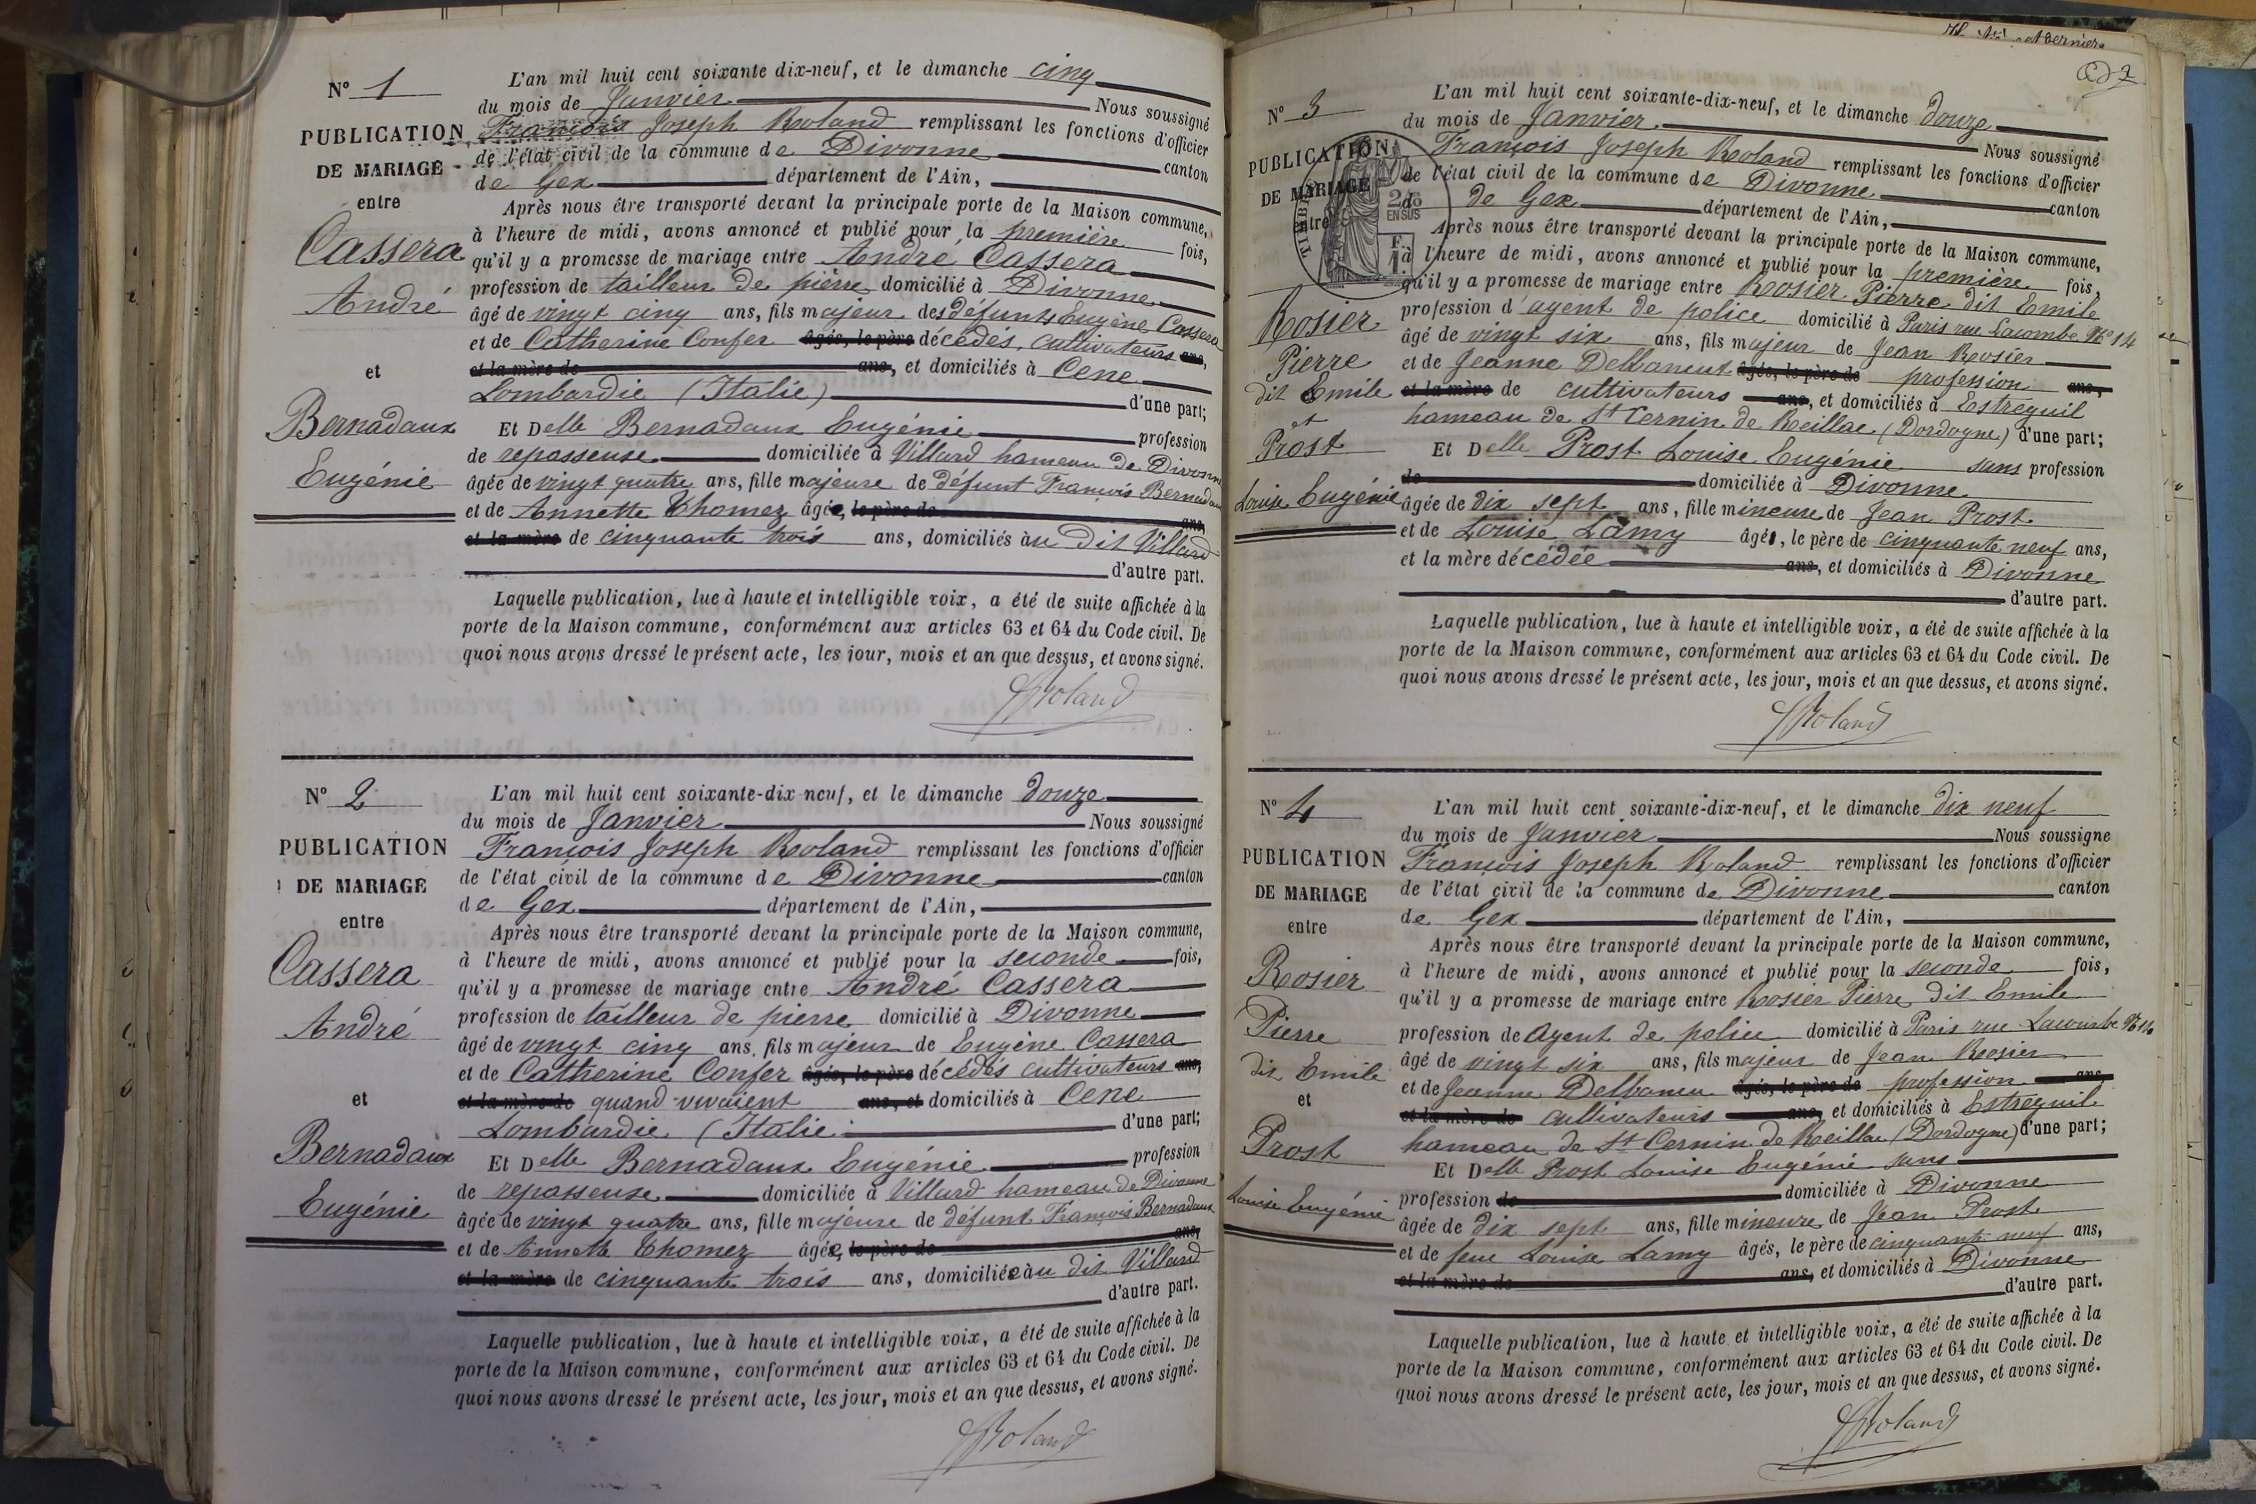 N° 1
PUBLICATION
DE MARIAGE
entre
Cassera
André
et
Bernadaux
Eugénie
L'an mil huit cent soixante dix-neuf, et le dimanche cinq
du mois de Janvier Nous soussigné
François Joseph Roland remplissant les fonctions d'officier
de l'état civil de la commune de Divonne canton
de Gex département de l'Ain,
Après nous être transporté devant la principale porte de la Maison commune,
à l'heure de midi, avons annoncé et publié pour la première fois,
qu'il y a promesse de mariage entre André Cassera
profession de tailleur de pierre domicilié à Divonne
âgé de vingt cinq ans, fils majeur des défunts Eugène Cassera
et de Catherine Confer âgés, le père décédés, cultivateurs ans,
et la mère de ans, et domiciliés à Cene
Lombardie (Italie) d'une part;
Et Delle Bernadaux Eugénie profession
de repasseuse domiciliée à Villard hameau de Divonne
âgée de vingt quatre ans, fille majeure de défunt François Bernadaux
et de Annette Thomez âgée, le père de ans,
et la mère de cinquante trois ans, domiciliés au dit Villard
d'autre part.
Laquelle publication, lue à haute et intelligible voix, a été de suite affichée à la
porte de la Maison commune, conformément aux articles 63 et 64 du Code civil. De
quoi nous avons dressé le présent acte, les jour, mois et an que dessus, et avons signé.
JRoland
N° 2
PUBLICATION
DE MARIAGE
entre
Cassera
André
et
Bernadaux
Eugénie
L'an mil huit cent soixante-dix-neuf, et le dimanche douze
du mois de Janvier Nous soussigné
François Joseph Roland remplissant les fonctions d'officier
de l'état civil de la commune de Divonne canton
de Gex département de l'Ain,
Après nous être transporté devant la principale porte de la Maison commune,
à l'heure de midi, avons annoncé et publié pour la seconde fois,
qu'il y a promesse de mariage entre André Cassera
profession de tailleur de pierre domicilié à Divonne
âgé de vingt cinq ans, fils majeur de Eugène Cassera
et de Catherine Confer âgés, le père décédés cultivateurs ans,
et la mère de quand vivaient ans, et domiciliés à Cene
Lombardie (Italie d'une part;
Et Delle Bernadaux Eugénie profession
de repasseuse domiciliée à Villard hameau de Divonne
âgée de vingt quatre ans, fille majeure de défunt François Bernadaux
et de Annette Thomez âgée, le père de ans,
et la mère de cinquante trois ans, domiciliée au dit Villard
d'autre part.
Laquelle publication, lue à haute et intelligible voix, a été de suite affichée à la
porte de la Maison commune, conformément aux articles 63 et 64 du Code civil. De
quoi nous avons dressé le présent acte, les jour, mois et an que dessus, et avons signé.
JRoland
N° 3
PUBLICATION
DE MARIAGE
entre
Rosier
Pierre
dit Emile
et
Prost
Louise Eugénie
L'an mil huit cent soixante-dix-neuf, et le dimanche douze
du mois de Janvier Nous soussigné
François Joseph Roland remplissant les fonctions d'officier
de l'état civil de la commune de Divonne canton
de Gex département de l'Ain,
Après nous être transporté devant la principale porte de la Maison commune,
à l'heure de midi, avons annoncé et publié pour la première fois,
qu'il y a promesse de mariage entre Rosier Pierre dit Emile
profession d'agent de police domicilié à Paris rue Lacombe N° 14
âgé de vingt six ans, fils majeur de Jean Rosier
et de Jeanne Delbancut âgés, le père de profession ans,
et la mère de cultivateurs ans, et domiciliés à Estréguil
hameau de St Cernin de Reillac (Dordogne) d'une part;
Et Delle Prost Louise Eugénie sans profession
de domiciliée à Divonne
âgée de dix sept ans, fille mineure de Jean Prost
et de Louise Lamy âgés, le père de cinquante neuf ans,
et la mère décédée ans, et domiciliés à Divonne
d'autre part.
Laquelle publication, lue à haute et intelligible voix, a été de suite affichée à la
porte de la Maison commune, conformément aux articles 63 et 64 du Code civil. De
quoi nous avons dressé le présent acte, les jour, mois et an que dessus, et avons signé.
JRoland
N° 4
PUBLICATION
DE MARIAGE
entre
Rosier
Pierre
dit Emile
et
Prost
Louise Eugénie
L'an mil huit cent soixante-dix-neuf, et le dimanche dix neuf
du mois de Janvier Nous soussigné
François Joseph Roland remplissant les fonctions d'officier
de l'état civil de la commune de Divonne canton
de Gex département de l'Ain,
Après nous être transporté devant la principale porte de la Maison commune,
à l'heure de midi, avons annoncé et publié pour la seconde fois,
qu'il y a promesse de mariage entre Rosier Pierre dit Emile
profession de agent de police domicilié à Paris rue Lacombe N° 14
âgé de vingt six ans, fils majeur de Jean Rosier
et de Jeanne Delbancu âgés, le père de profession ans,
et la mère de cultivateurs ans, et domiciliés à Estréguil
hameau de St Cernin de Reillac (Dordogne) d'une part;
Et Delle Prost Louise Eugénie sans
profession de domiciliée à Divonne
âgée de dix sept ans, fille mineure de Jean Prost
et de feue Louise Lamy âgés, le père de cinquante neuf ans,
et la mère de ans, et domiciliés à Divonne
d'autre part.
Laquelle publication, lue à haute et intelligible voix, a été de suite affichée à la
porte de la Maison commune, conformément aux articles 63 et 64 du Code civil. De
quoi nous avons dressé le présent acte, les jour, mois et an que dessus, et avons signé.
JRoland